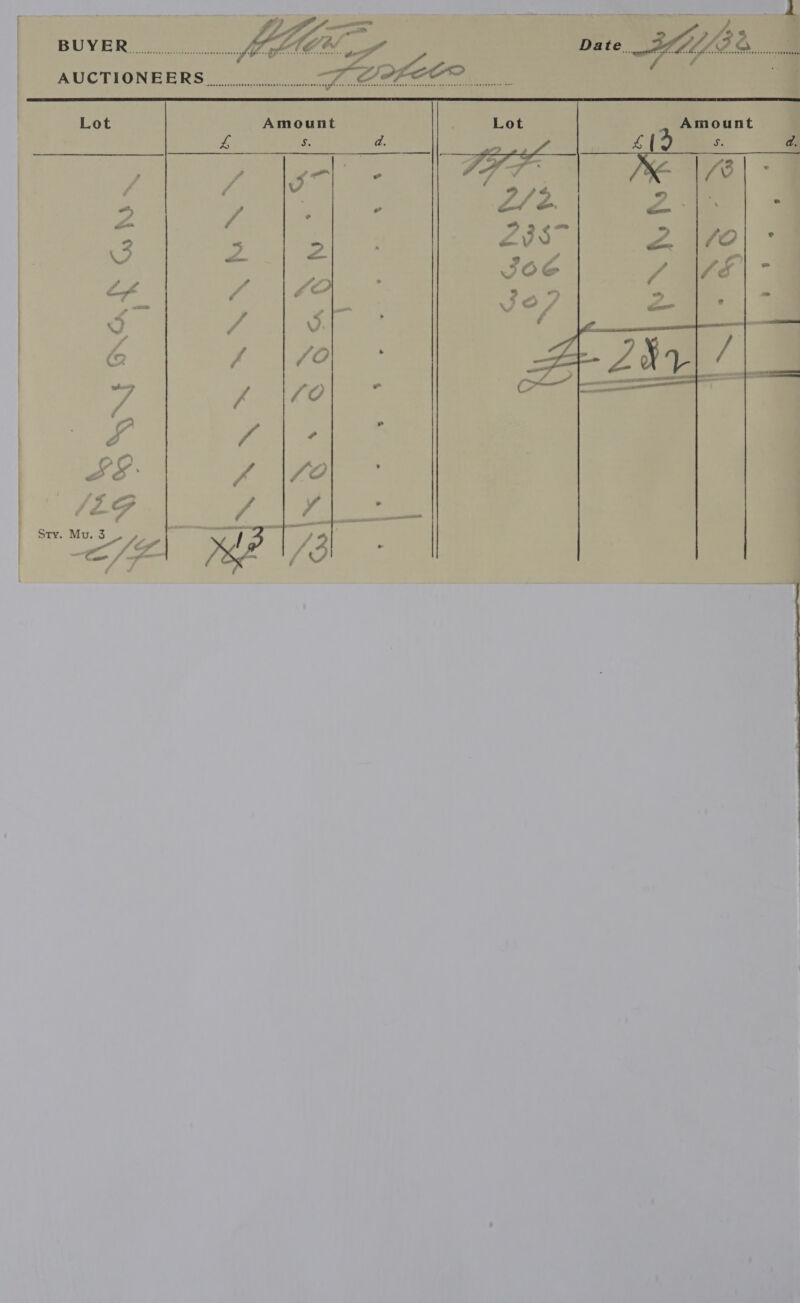 BUYER
Date 3/11/32
AUCTIONEERS
Lot Amount £ s. d.
1 1 5 -
2 1 - -
3 2 2 -
4 1 10 -
5 1 5 -
6 1 10 -
7 1 10 -
8 1 - -
88. 1 10 -
129 1 1 -
Stv. Mu. 3 c/f 13 13 -
Lot Amount £ s. d.
13 13 -
212. 2 - -
235 2 10 -
306 1 18 -
307 2 - -
£ 22 1